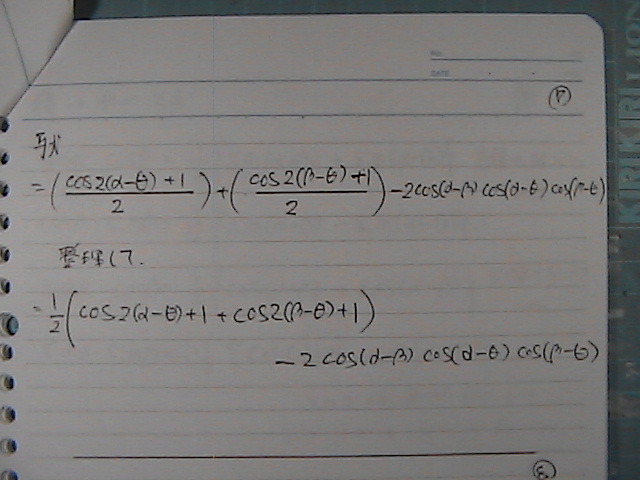 NO.
DATE
与式
= (cos2(α−θ)+1 / 2) + (cos2(β−θ)+1 / 2) −2cos(α−β)cos(α−θ)cos(β−θ)
整理して.
= 1/2 (cos2(α−θ)+1+cos2(β−θ)+1)
−2cos(α−β) cos(α−θ) cos(β−θ)